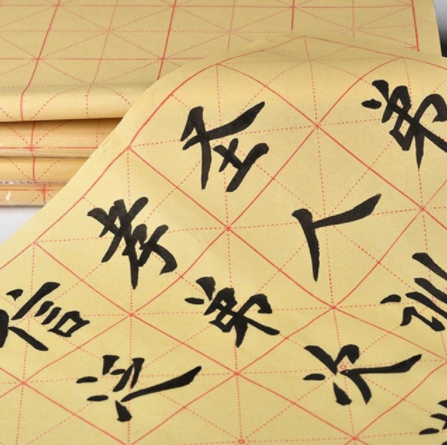 弟
圣人训
孝弟次
信泛